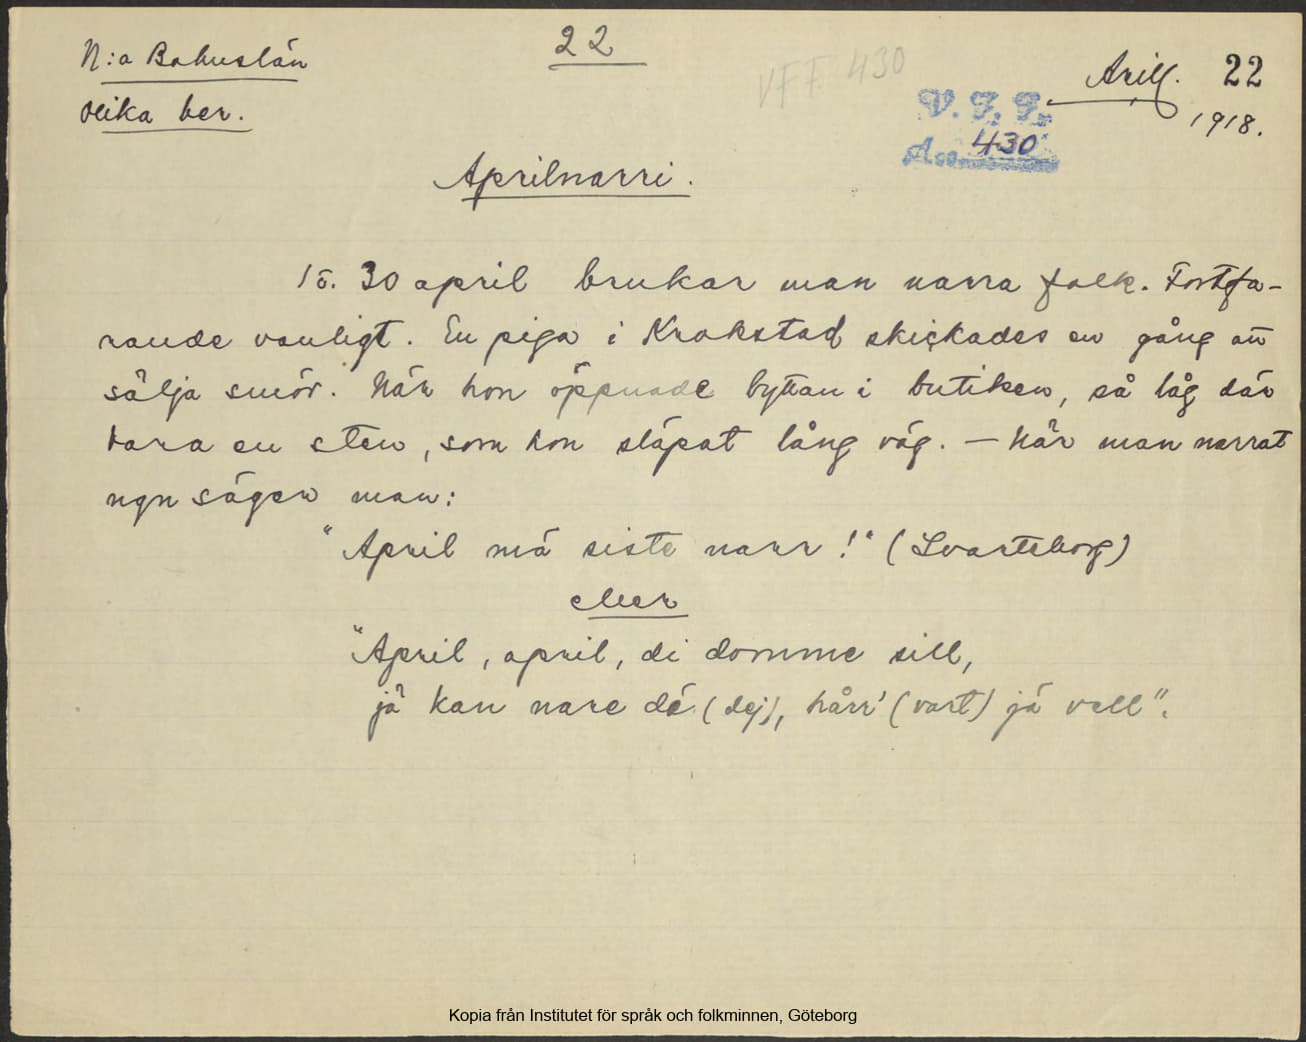 N:a Bohuslän
olika ber.
22
VFF 430
Arill. 22
1918.
V. F. F.
Acc. 430
Aprilnarri.
1 o. 30 april brukar man narra folk. Fortfa-
rande vanligt. En piga i Krokstad skickades en gång att
sälja smör. När hon öppnade byttan i butiken, så låg där
bara en sten, som hon släpat lång väg. — När man narrat
ngn säger man:
"April mä siste narr!" (Svarteborg)
eller
"April, april, di domme sill,
jä kan nare dé (dej), hårr' (vart) jä vell".
Kopia från Institutet för språk och folkminnen, Göteborg